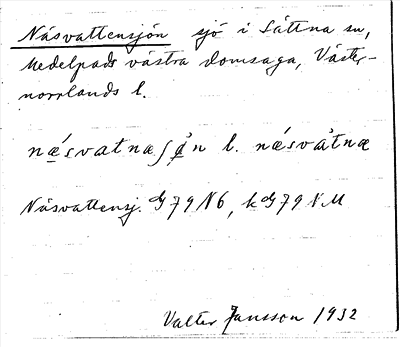 Näsvattensjön sjö i Sättna sn,
Medelpads västra domsaga, Väster-
norrlands l.
næ´svatnaʃø̨̊n l. næ´svåtnæ
Näsvattensj. G79N6, kG79NM
Valter Jansson 1932